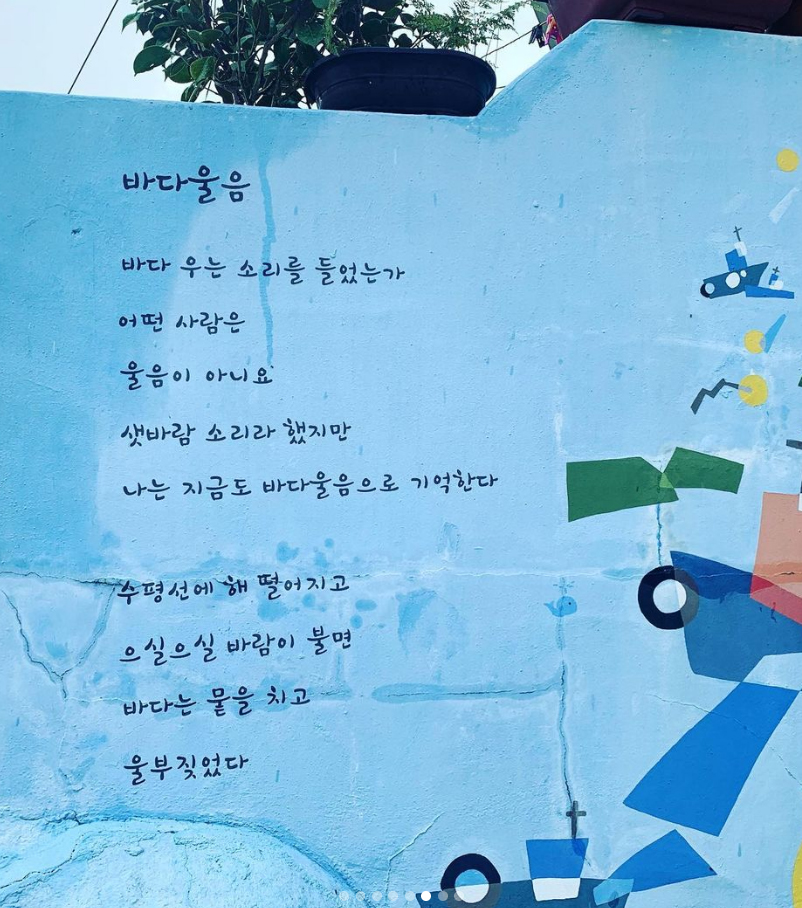 바다울음
바다 우는 소리를 들었는가
어떤 사람은
울음이 아니요
샛바람 소리라 했지만
나는 지금도 바다울음으로 기억한다
수평선에 해 떨어지고
으실으실 바람이 불면
바다는 뭍을 치고
울부짖었다